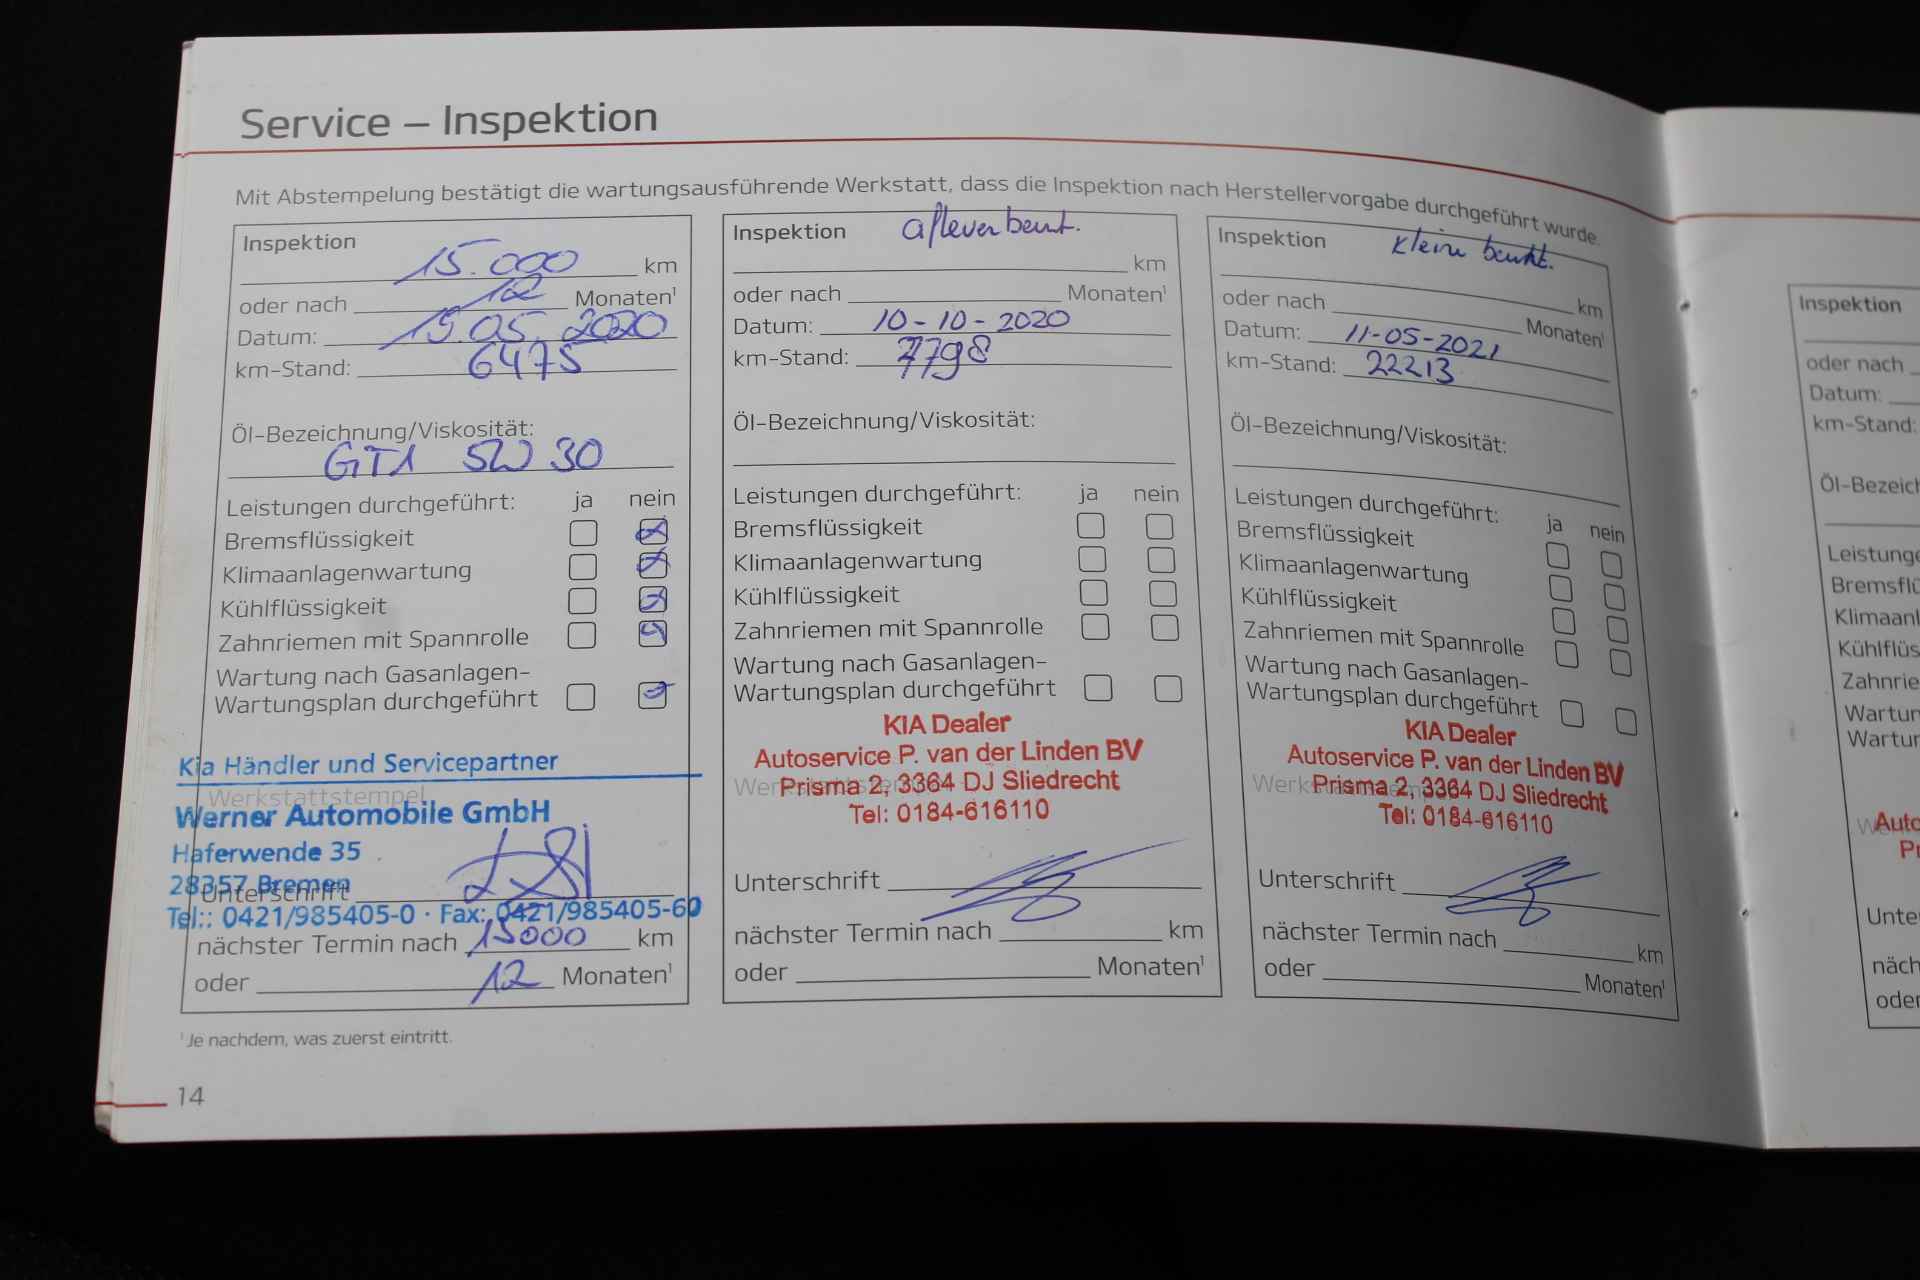 Service – Inspektion
Mit Abstempelung bestätigt die wartungsausführende Werkstatt, dass die Inspektion nach Herstellervorgabe durchgeführt wurde.
Inspektion
15.000 km
oder nach 12 Monaten¹
Datum: 15.05.2020
km-Stand: 6475
Öl-Bezeichnung/Viskosität:
GT1 5W 30
Leistungen durchgeführt: ja nein
Bremsflüssigkeit
Klimaanlagenwartung
Kühlflüssigkeit
Zahnriemen mit Spannrolle
Wartung nach Gasanlagen-
Wartungsplan durchgeführt
Kia Händler und Servicepartner
Werkstattstempel
Werner Automobile GmbH
Haferwende 35
28357 Bremen
Unterschrift
Tel:: 0421/985405-0 · Fax: 0421/985405-60
nächster Termin nach 15000 km
oder 12 Monaten¹
Inspektion afleverbeurt.
km
oder nach Monaten¹
Datum: 10-10-2020
km-Stand: 7798
Öl-Bezeichnung/Viskosität:
Leistungen durchgeführt: ja nein
Bremsflüssigkeit
Klimaanlagenwartung
Kühlflüssigkeit
Zahnriemen mit Spannrolle
Wartung nach Gasanlagen-
Wartungsplan durchgeführt
KIA Dealer
Autoservice P. van der Linden BV
Prisma 2, 3364 DJ Sliedrecht
Tel: 0184-616110
Unterschrift
nächster Termin nach km
oder Monaten¹
Inspektion kleine beurt.
km
oder nach Monaten¹
Datum: 11-05-2021
km-Stand: 22213
Öl-Bezeichnung/Viskosität:
Leistungen durchgeführt: ja nein
Bremsflüssigkeit
Klimaanlagenwartung
Kühlflüssigkeit
Zahnriemen mit Spannrolle
Wartung nach Gasanlagen-
Wartungsplan durchgeführt
KIA Dealer
Autoservice P. van der Linden BV
Prisma 2, 3364 DJ Sliedrecht
Tel: 0184-616110
Unterschrift
nächster Termin nach km
oder Monaten¹
¹Je nachdem, was zuerst eintritt.
14
Inspektion
oder nach
Datum:
km-Stand:
Öl-Bezeich
Leistunge
Bremsflü
Klimaanl
Kühlflüs
Zahnrie
Wartun
Wartur
Auto
Pr
Unter
näch
oder